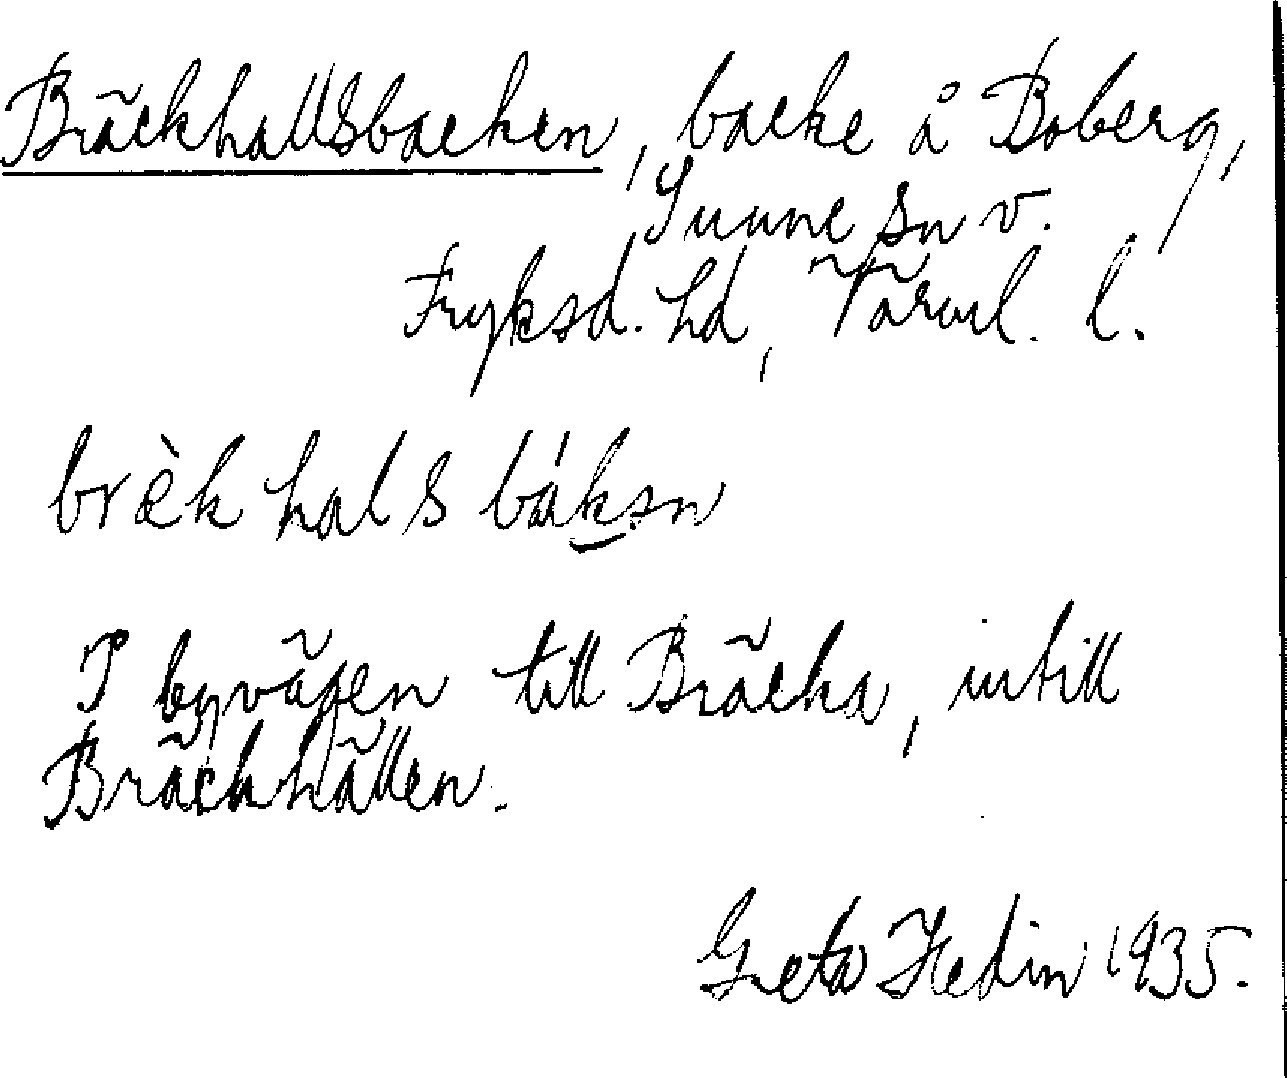 Bräckhallsbacken, backe å Boberg,
Sunne sn v.
Fryksd. hd, Värml. l.
brèk hals báksn
I byvägen till Bräcka, intill
Bräckhällen.
Greta Hedin 1935.